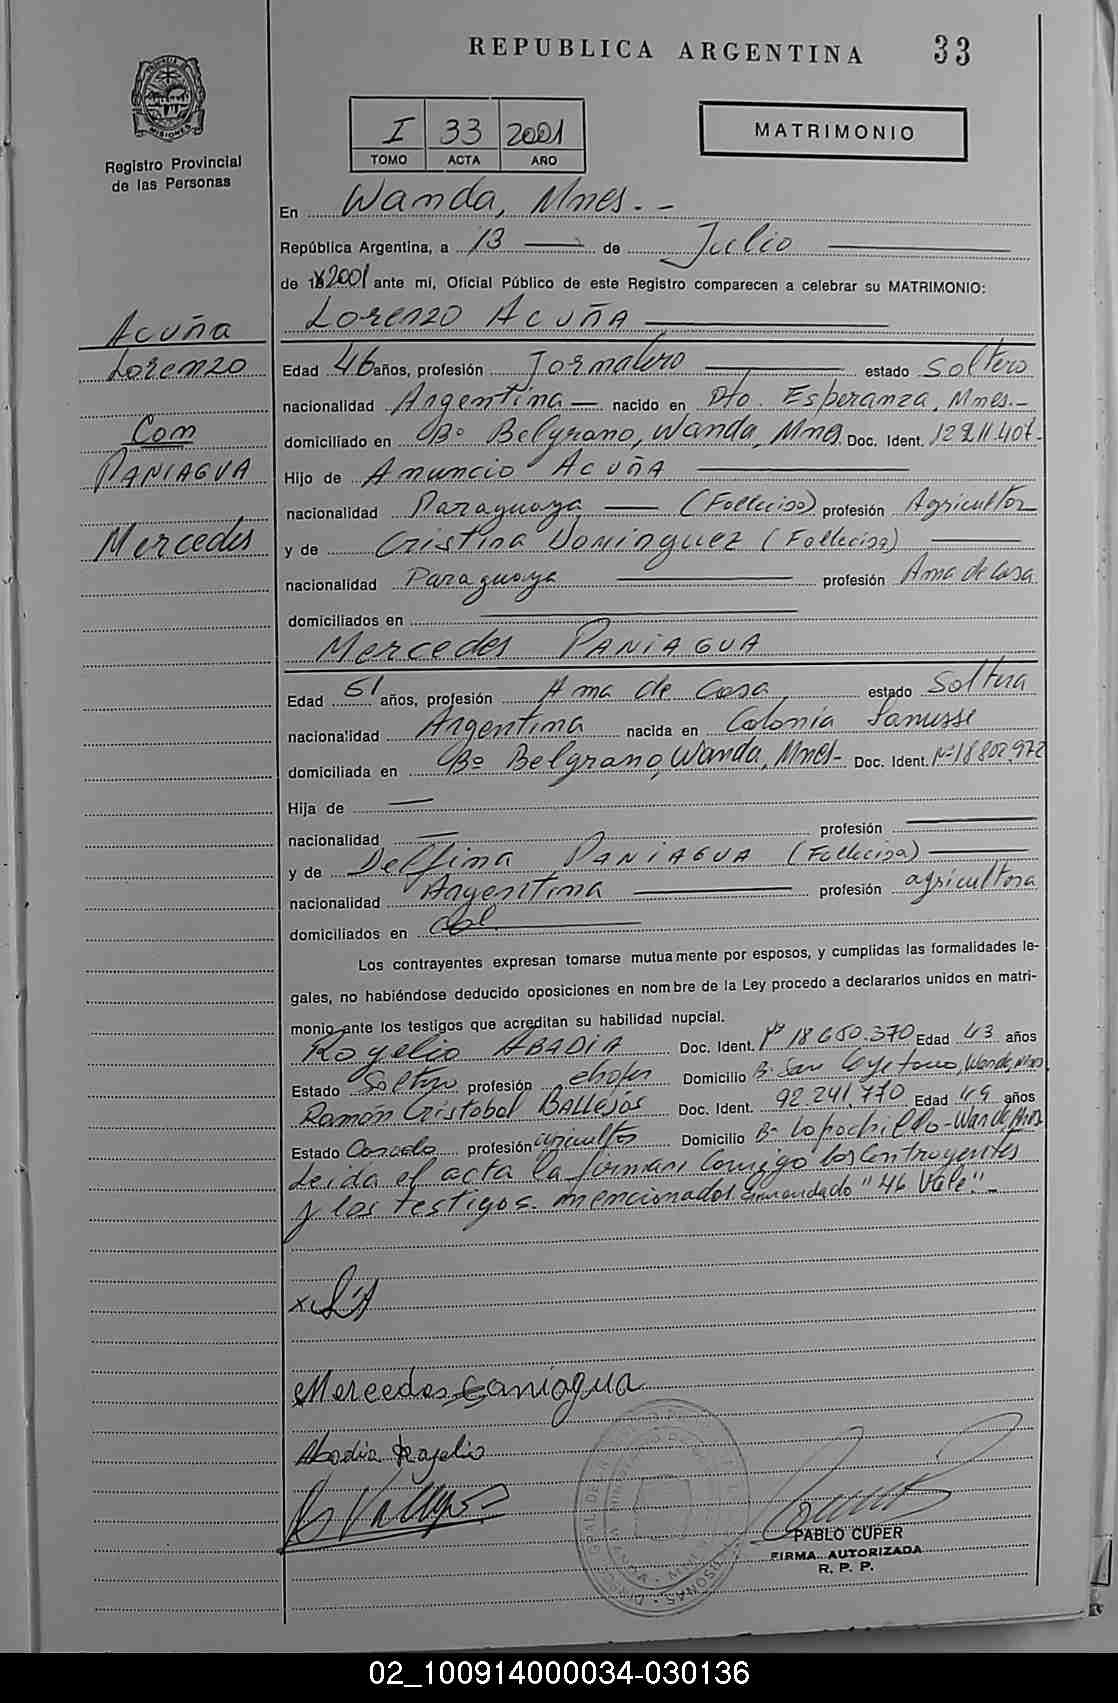 REPUBLICA ARGENTINA 33
MISIONES
Registro Provincial
de las Personas
I 33 2001
TOMO ACTA AÑO
MATRIMONIO
En Wanda, Mnes.-
República Argentina, a 13 de Julio
de 2001 ante mí, Oficial Público de este Registro comparecen a celebrar su MATRIMONIO:
Lorenzo Acuña
Acuña
Lorenzo
Con
PANIAGUA
Mercedes
Edad 46 años, profesión Jornalero estado Soltero
nacionalidad Argentina nacido en Pto. Esperanza, Mnes.-
domiciliado en Bº Belgrano, Wanda, Mnes. Doc. Ident.
Hijo de Anuncio Acuña
nacionalidad Paraguaya (Fallecido) profesión Agricultor
y de Cristina Dominguez (Fallecida)
nacionalidad Paraguaya profesión Ama de Casa
domiciliados en
Mercedes PANIAGUA
Edad 51 años, profesión Ama de Casa estado Soltera
nacionalidad Argentina nacida en Colonia Lanusse
domiciliada en Bº Belgrano, Wanda, Mnes- Doc. Ident. Nº 18802.972
Hija de
nacionalidad profesión
y de Delfina PANIAGUA (Fallecida)
nacionalidad Argentina profesión agricultora
domiciliados en
Los contrayentes expresan tomarse mutuamente por esposos, y cumplidas las formalidades le-
gales, no habiéndose deducido oposiciones en nombre de la Ley procedo a declararlos unidos en matri-
monio ante los testigos que acreditan su habilidad nupcial.
Rogelio ABADIA Doc. Ident. Nº 18650.370 Edad 43 años
Estado Soltero profesión chofer Domicilio Bº San Cayetano, Wanda, Mnes.
Ramón Cristobal BALLEJOS Doc. Ident. 92.241.770 Edad 49 años
Estado Casado profesión agricultor Domicilio Bº - Wanda, Mnes
Leida el acta la firman Conmigo los Contrayentes
y los testigos mencionados Enmendado "46 Vale".-
x LA
Mercedes Paniagua
Abadia Rogelio
PABLO CUPER
FIRMA AUTORIZADA
R. P. P.
02_100914000034-030136